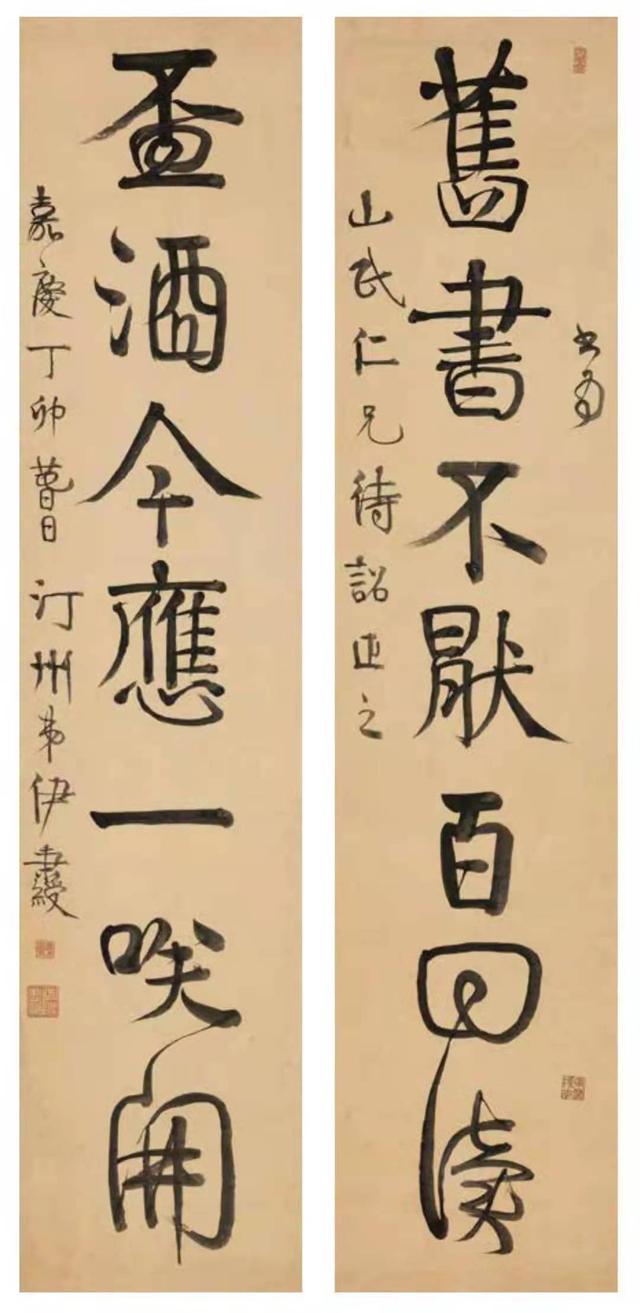 書爲
舊書不猒百回讀
山民仁兄待詔正之
盃酒今應一咲開
嘉慶丁卯日汀州弟伊秉綬